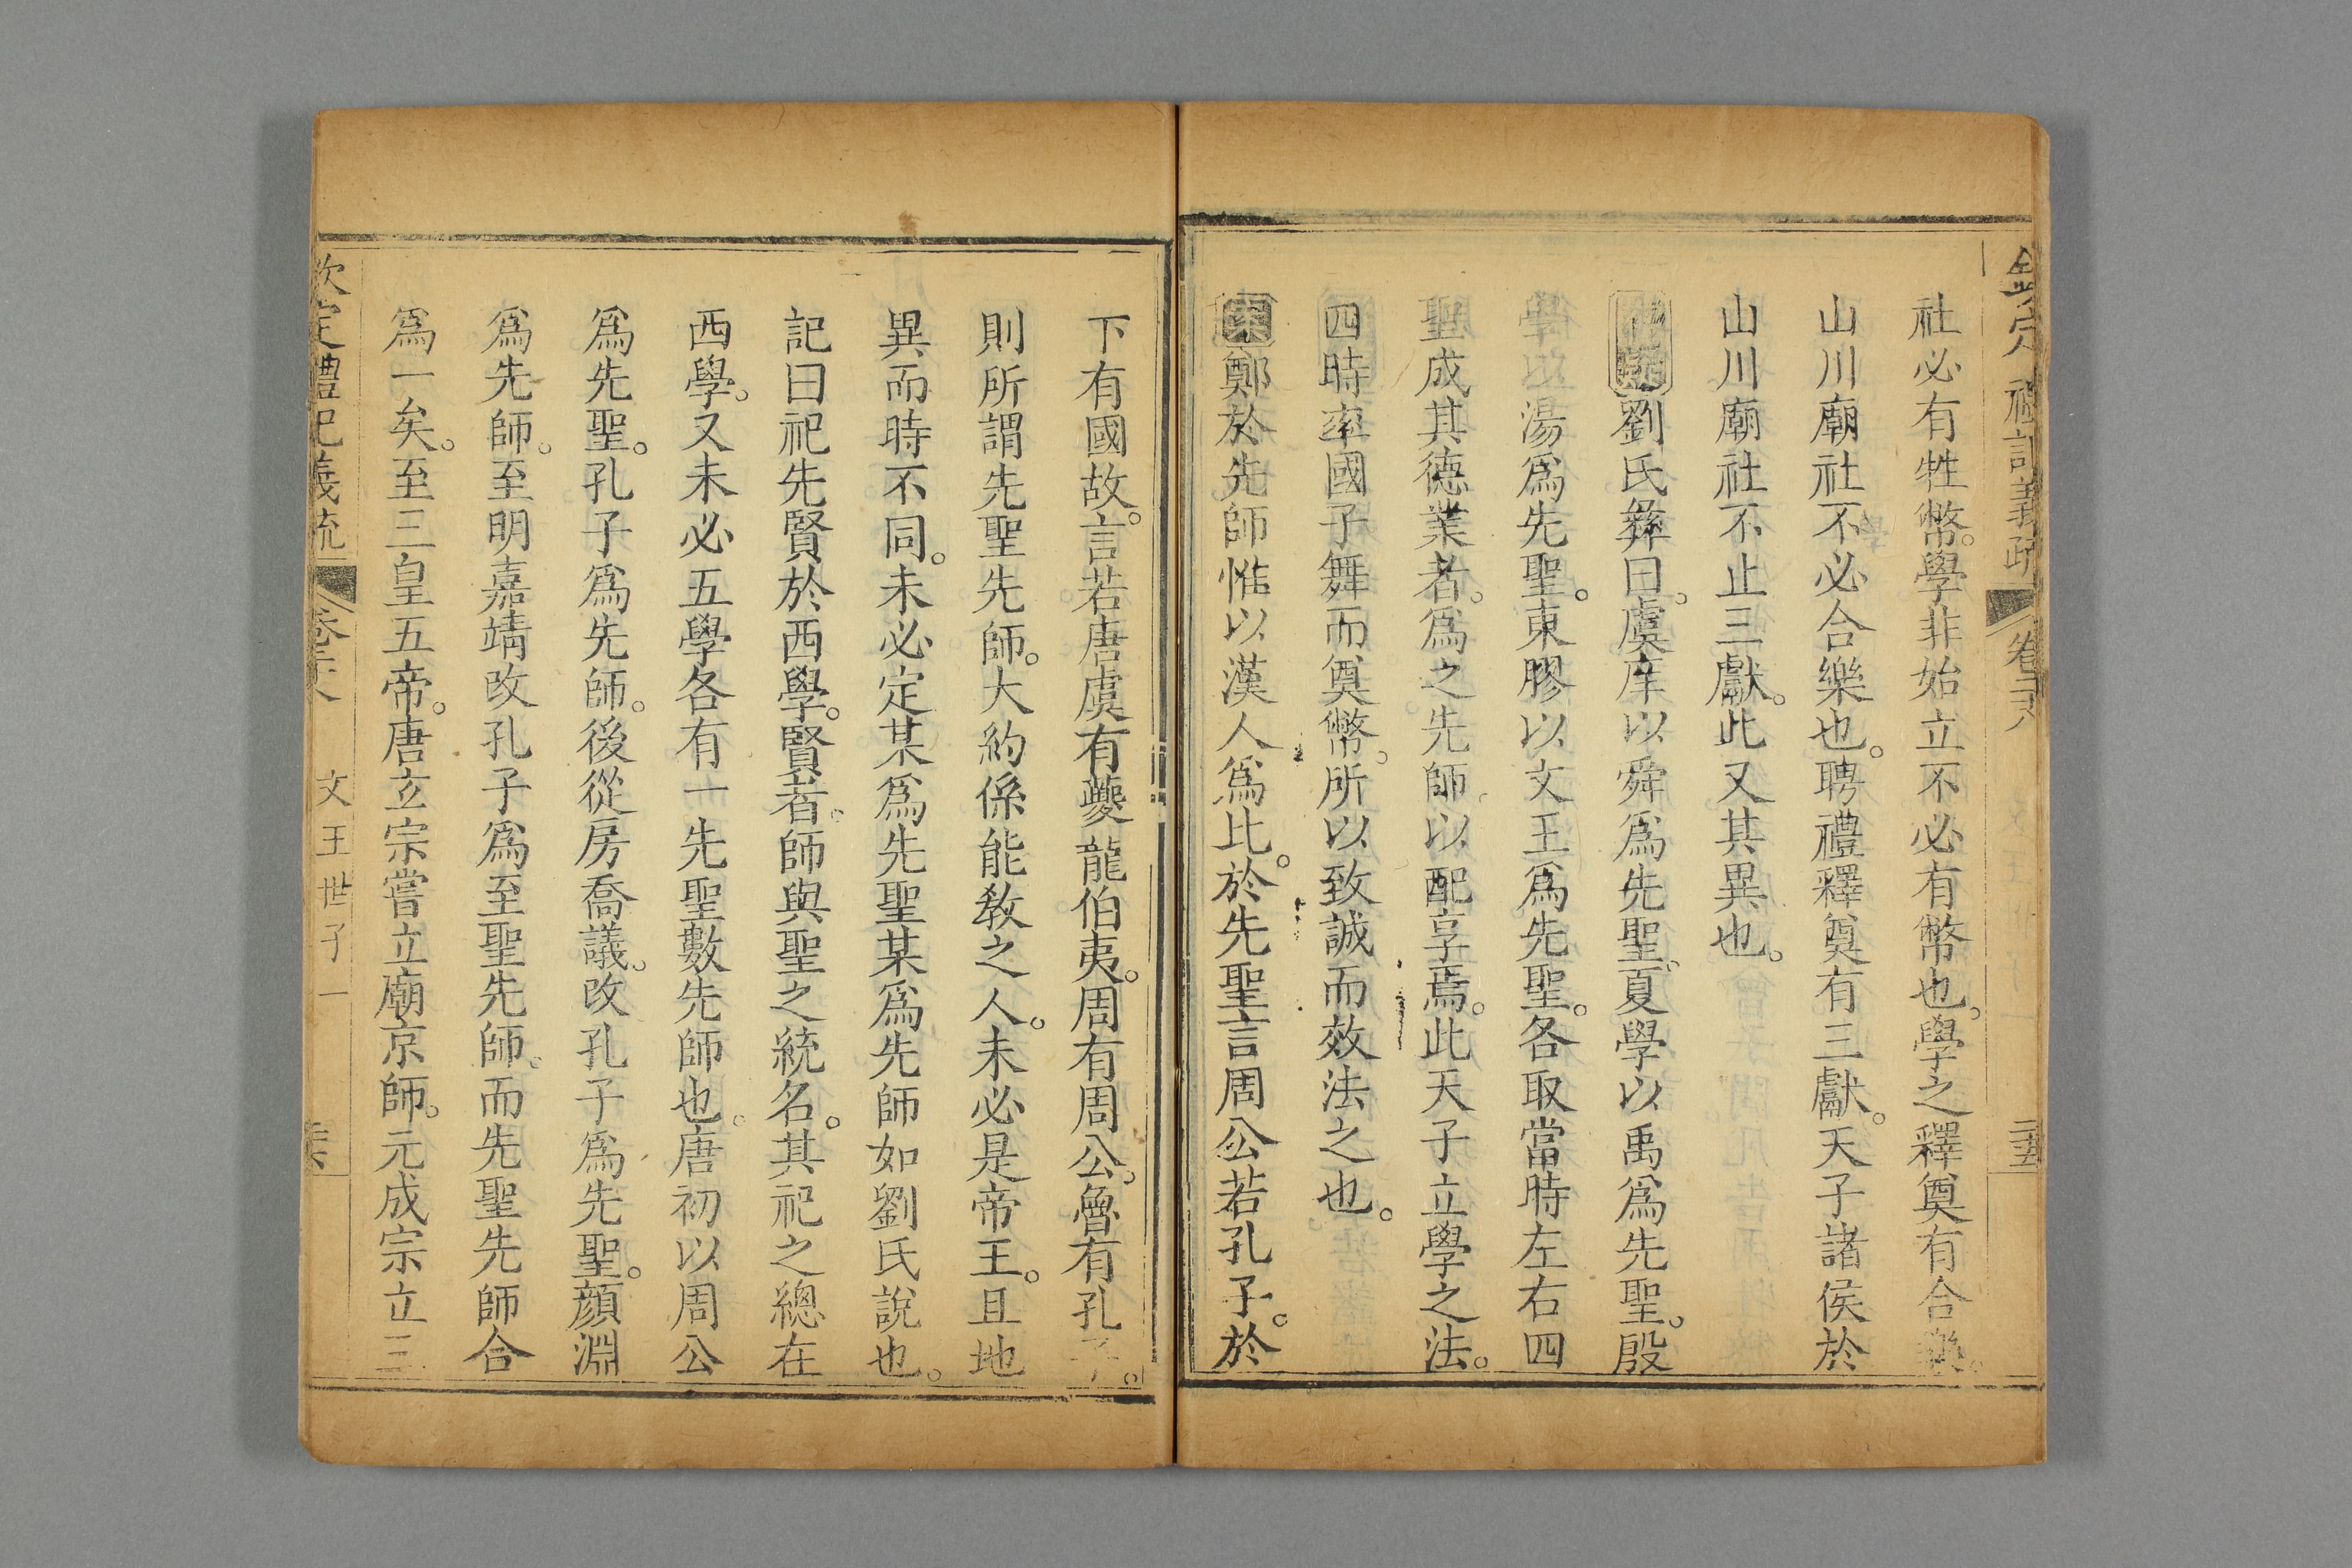 欽定禮記義疏 卷二十八 二十五
社必有牲幣。學非始立不必有幣也。學之釋奠有合樂。
山川廟社不必合樂也。聘禮釋奠有三獻。天子諸侯於
山川廟社不止三獻。此又其異也。
劉氏彝曰。虞庠以舜爲先聖。夏學以禹爲先聖。殷
學以湯爲先聖。東膠以文王爲先聖。各取當時左右四
聖成其德業者。爲之先師。以配享焉。此天子立學之法。
四時率國子舞而奠幣。所以致誠而效法之也。
案鄭於先師惟以漢人爲比。於先聖言周公若孔子。於
下有國故。言若唐虞有夔龍伯夷。周有周公。魯有孔子。
則所謂先聖先師。大約係能敎之人。未必是帝王。且地
異而時不同。未必定某爲先聖某爲先師如劉氏說也。
記曰祀先賢於西學。賢者。師與聖之統名。其祀之總在
西學。又未必五學各有一先聖數先師也。唐初以周公
爲先聖。孔子爲先師。後從房喬議。改孔子爲先聖。顏淵
爲先師。至明嘉靖改孔子爲至聖先師。而先聖先師合
爲一矣。至三皇五帝。唐玄宗嘗立廟京師。元成宗立三
欽定禮記義疏 卷二十八 文王世子一 二十六